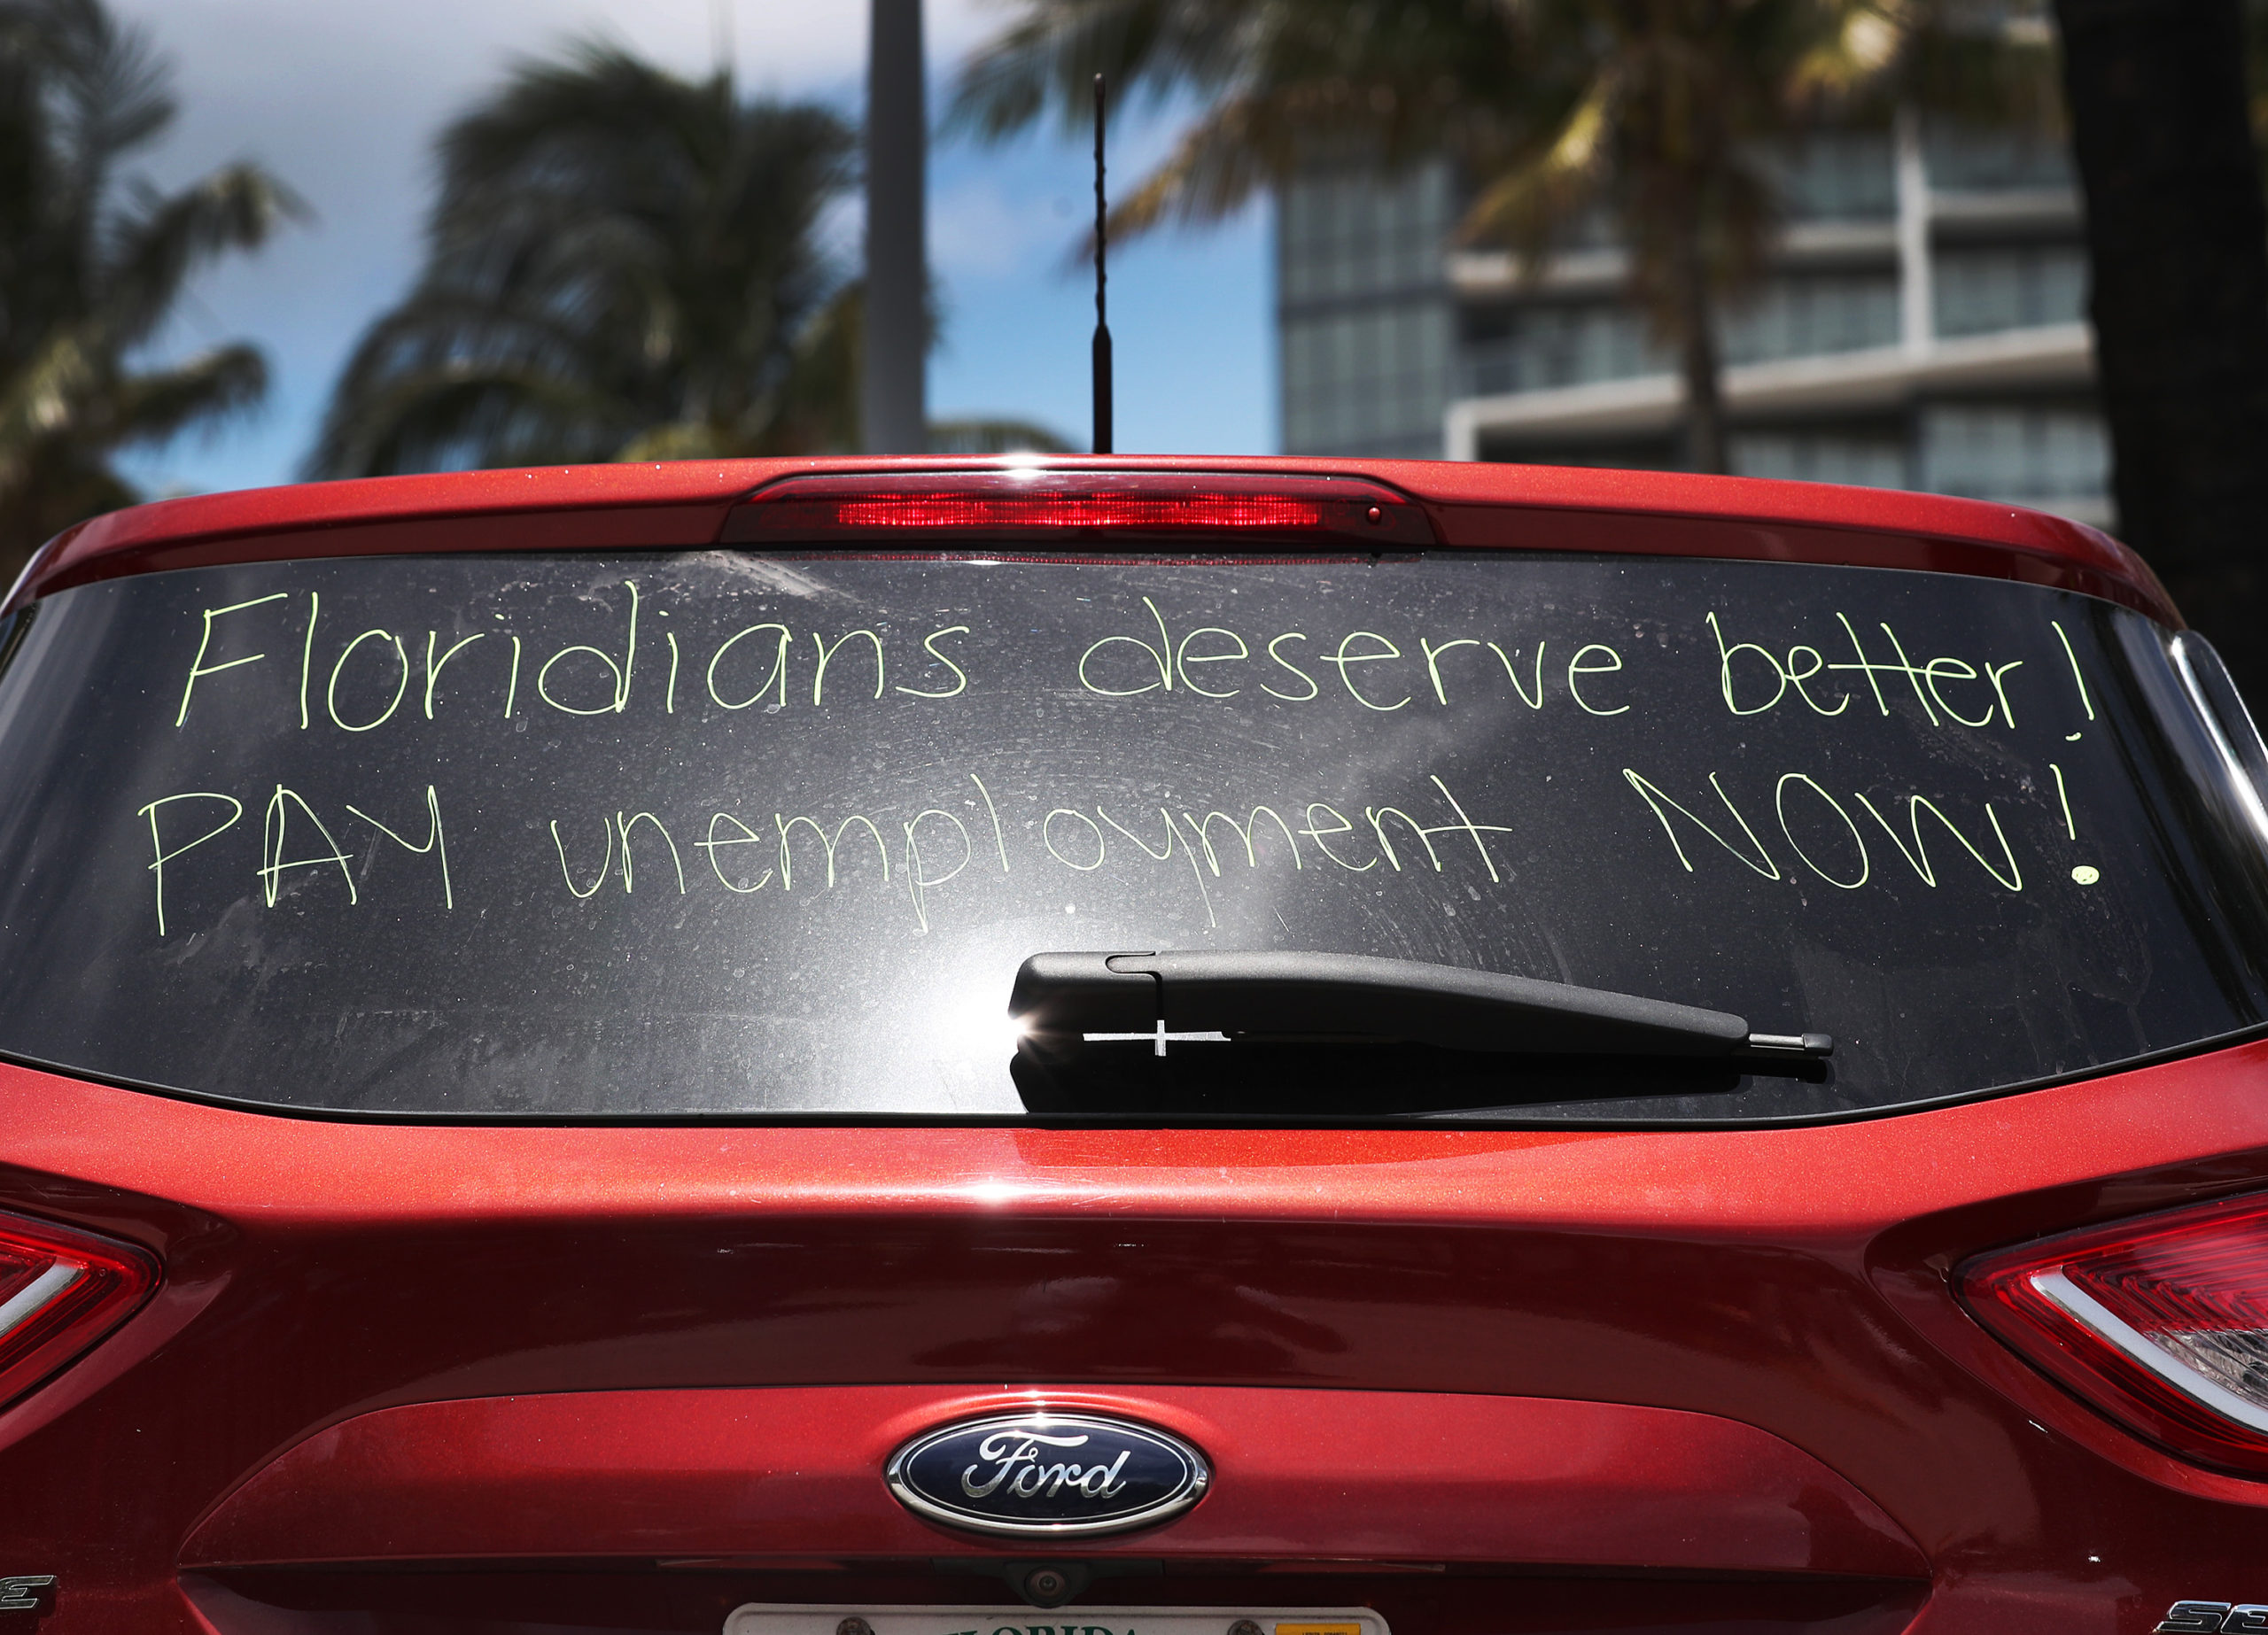 Floridians deserve better!
PAY unemployment NOW!
Ford
FLORIDA